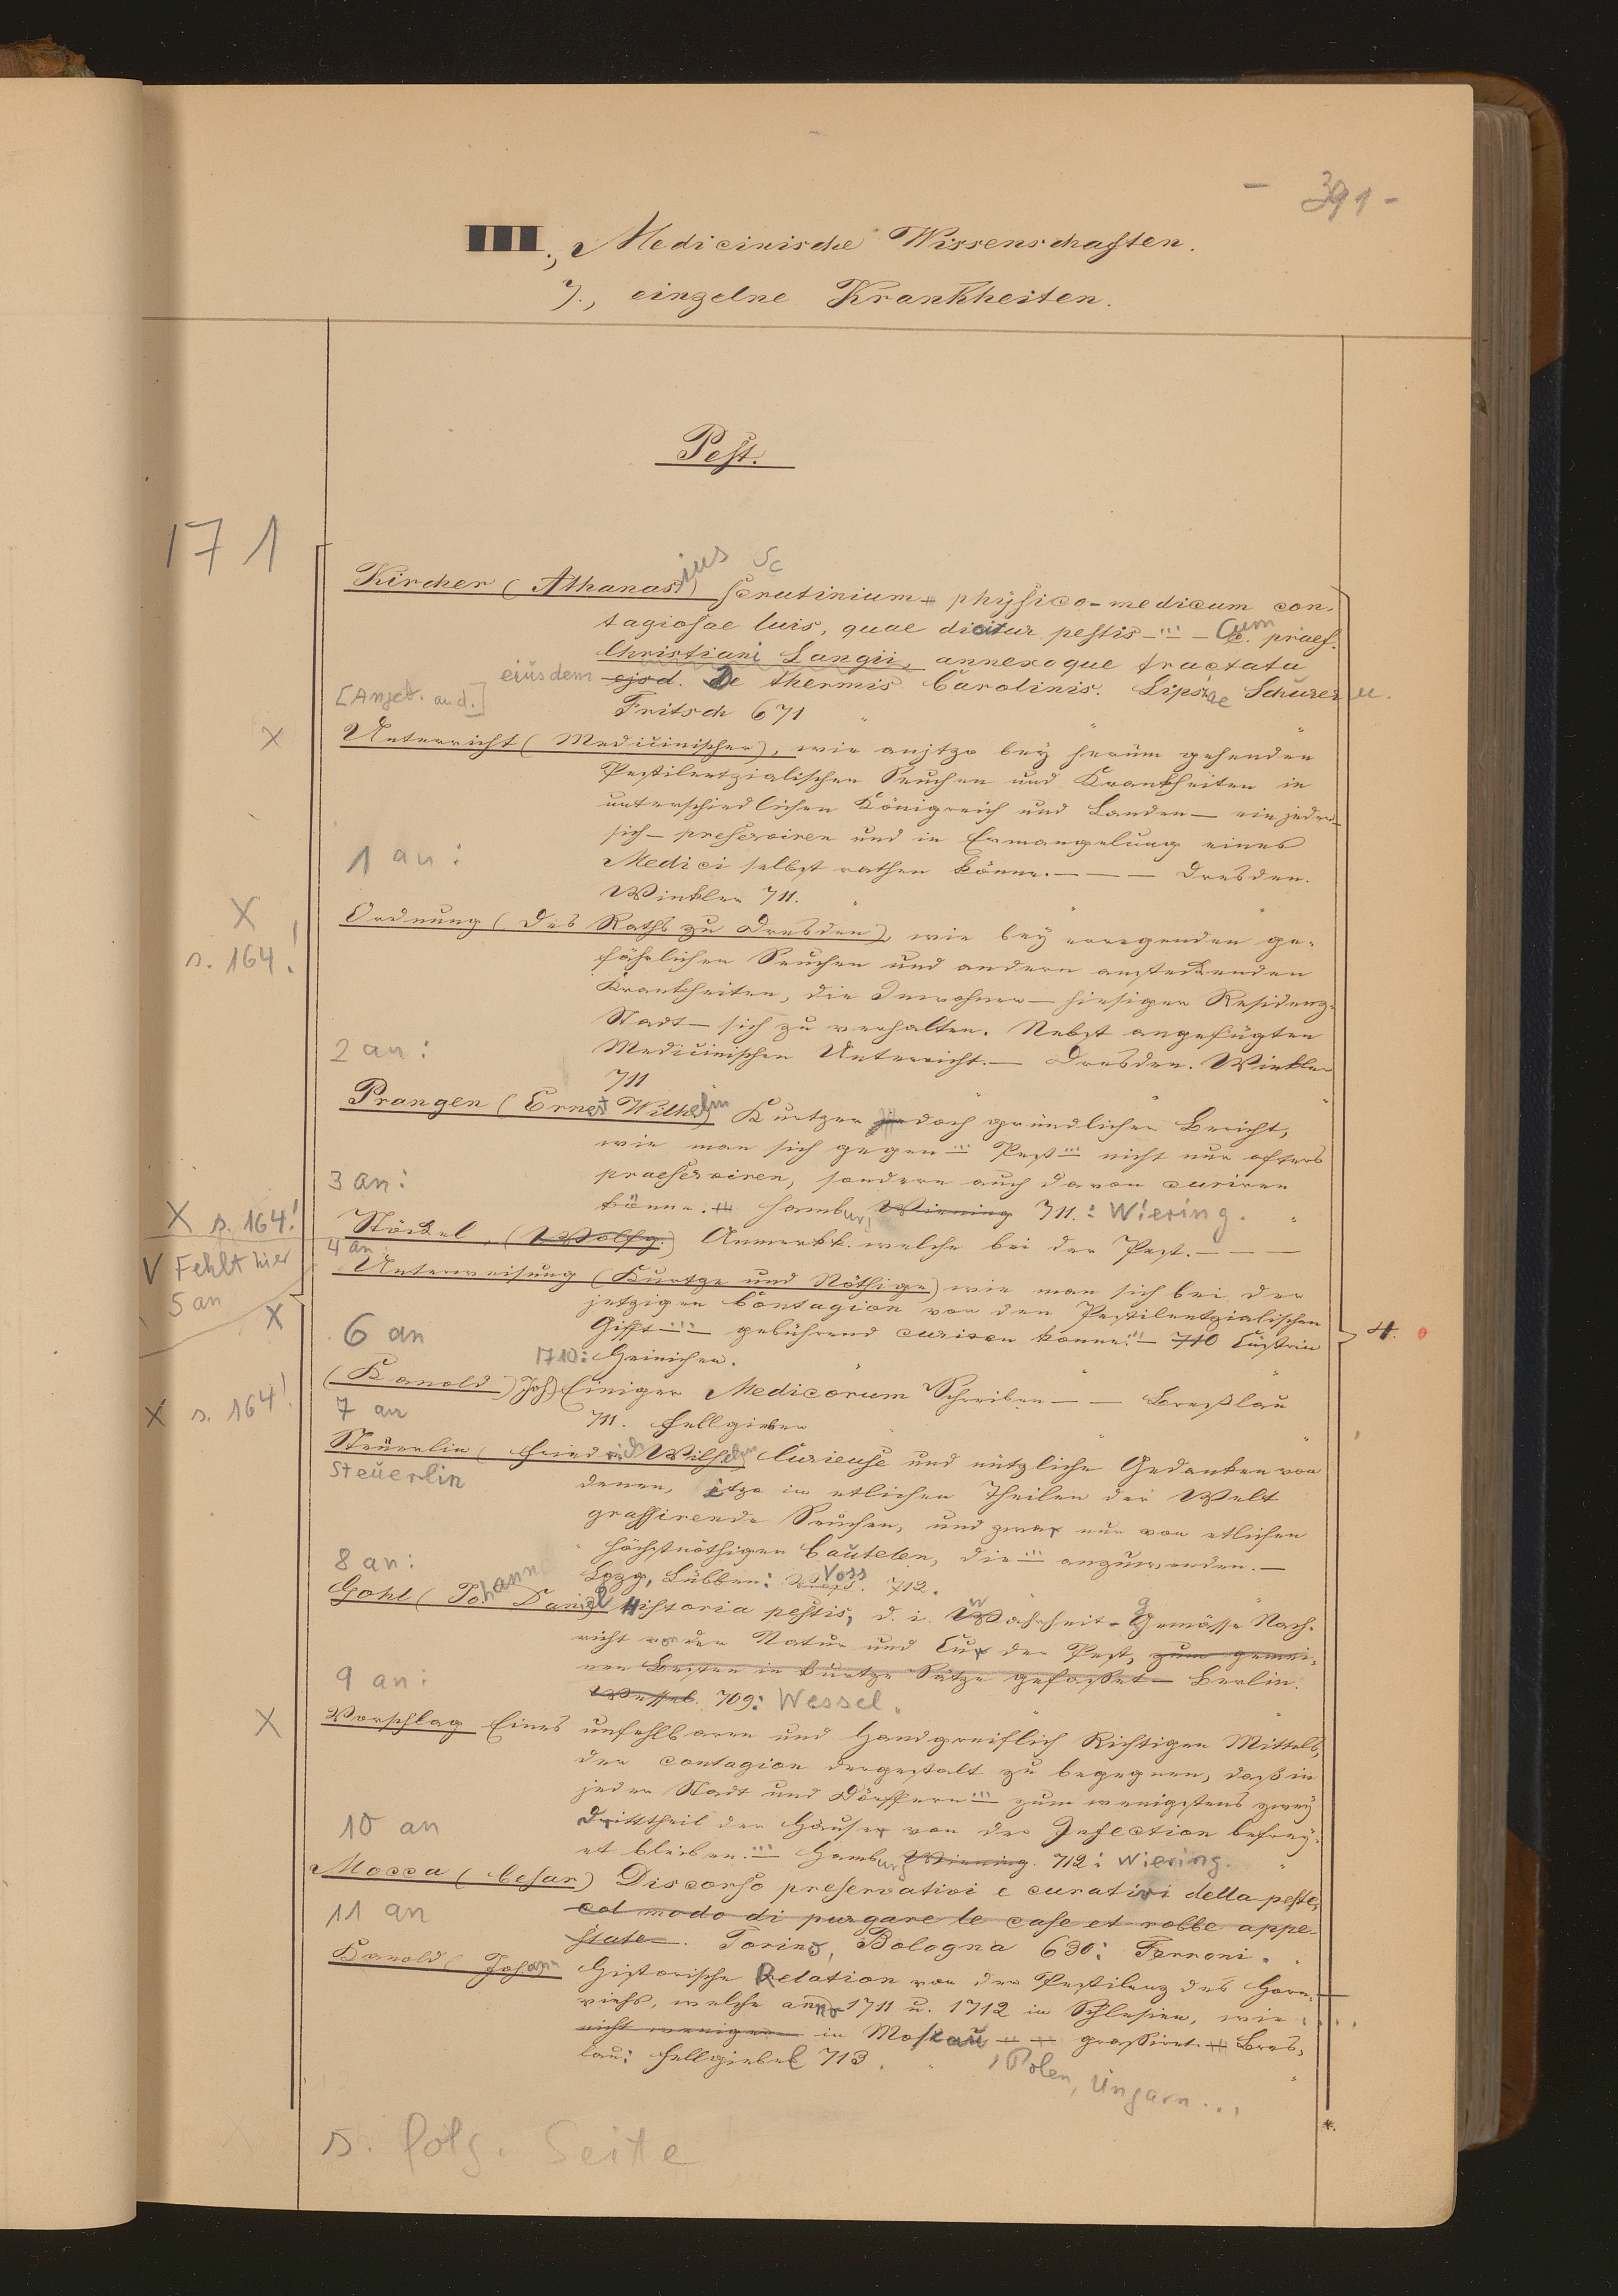 - 391 -
III., Medicinische Wissenschaften.
7., einzelne Krankheiten.
Pest.
171
Kircher (Athanasius) Scrutinium physico-medicum con-
tagiosae luis, quae dicitur pestis - ''' - Cum praef.
Christiani Langii, annexoque tractatu
eiusdem ejsd. De thermis Carolinis. Lipsiae Schürer u.
[Angeb. and.]
Fritsch 671
X
Unterricht (Medicinischer), wie anjtzo bey herüm gehenden
Pestilentzialischen Seuchen und Krankheiten in
unterschiedlichen Königreich und Landen — ein jeder
sich — preserviren und in Ermangelung eines
1 an:
Medici selbst rathen könne. — — — Dresden.
Winkler 711.
X
s. 164!
Ordnung (Des Raths zu Dresden), wie bey erregenden ge-
fährlichen Seuchen und andern ansteckenden
Krankheiten, die Inwohner — hiesiger Residenz-
Stadt — sich zu verhalten. Nebst angefügten
2 an:
Medicinischen Unterricht. — Dresden. Winkler
711
Prangen (Ernest Wilhelm Kurtzer jedoch gründlicher Bericht,
wie man sich gegen ''' Pest ''' nicht nur öfters
3 an:
praeserviren, sondern auch davon curiren
könne. Hamburg Wiening 711.: Wiering.
X s. 164!
Stöckel, (Wolfg.) Anmerkk. welche bei der Pest. — — —
4 an
V Fehlt hier
5 an
X
Unterweisung (Kurtze und Nöthige) wie man sich bei der
jetzigen Contagion vor den Pestilentzialischen
Gifft - ''' - gebührend curiren könne ''' - 710 Cüstrin
6 an
1710: Heinichen.
4.
(Kanold) Joh) Einiger Medicorum Schreiben — — Breßlau
X s. 164!
7 an
711. Fellgieber
Steuerlin (Friedrich Wilhelm Curieuse und nützliche Gedanken von
Steuerlin
denen, itzo in etlichen Theilen der Welt
grassirende Seuchen, und zwar nur von etlichen
höchstnöthigen Cautelen, die ''' anzuwenden. —
8 an:
Lpzg, Lübben: Voss. 712.
Gohl (Johann Daniel Historia pestis, d. i. Wahrheit-Gemässe Nach-
richt von der Natur und Cur der Pest, zum gemei-
nen Besten in kurtze Sätze gefasset — Berlin.
9 an:
Wessel. 709: Wessel.
X
Vorschlag Eines unfehlbaren und Handgreiflich Richtigen Mittels,
der contagion dergestalt zu begegnen, daß in
jeder Stadt und Dörffern ''' zum wenigstens zwey
10 an
Dritttheil der Häuser von der Infection befrey-
et bleiben. ''' Hamburg Wiening. 712: Wiering.
Mocca (Cesar) Discorso preservativi e curativi della peste,
11 an
col modo di purgare le case et robbe appe-
state —. Torino, Bologna 630: Ferroni.
Kanold (Johann Historische Relation von der Pestilenz des Horn-
viehs, welche anno 1711 u. 1712 in Schlesien, wie ....
nicht weniger in Moskau grassiret. Bres-
lau: Fellgiebel 713.
, Polen, Ungarn...
s. folg. Seite